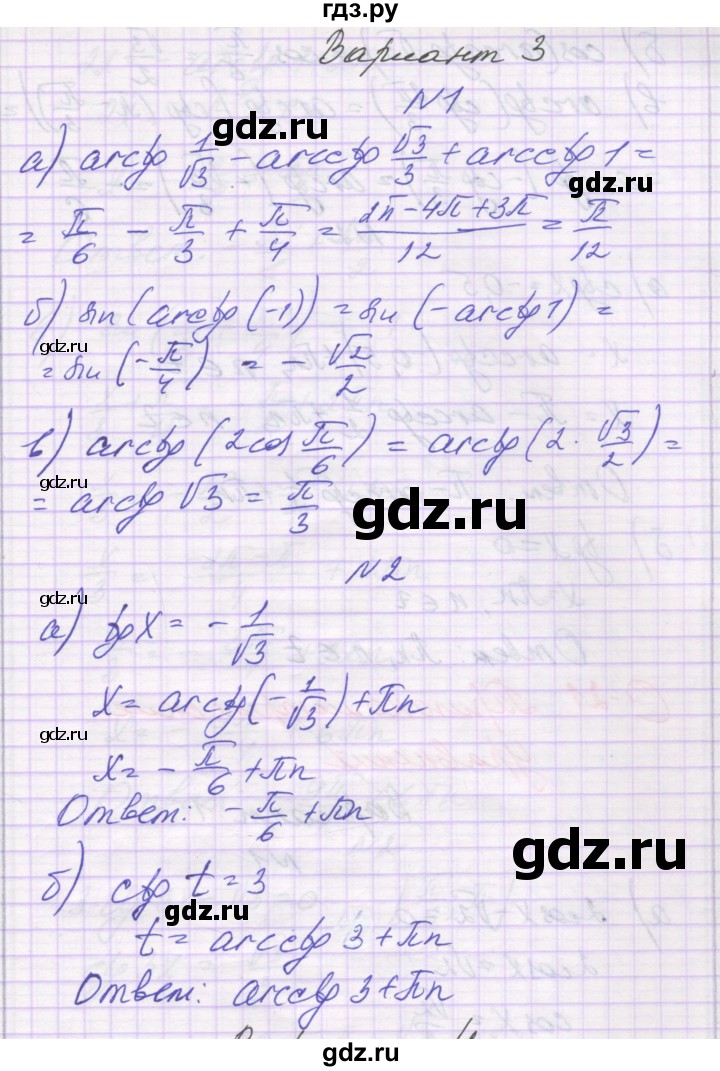 гдз.ру
Вариант 3
N1
gdz.ru
а) arctg 1/√3 - arcctg √3/3 + arcctg 1 =
gdz.ru
= π/6 - π/3 + π/4 = (2π-4π+3π)/12 = π/12
gdz.ru
б) sin(arctg(-1)) = sin(-arctg 1) =
gdz.ru
= sin(-π/4) = -√2/2
в) arctg(2cos π/6) = arctg(2 · √3/2) =
gdz.ru
= arctg √3 = π/3
gdz.ru
N2
gdz.ru
а) tg x = - 1/√3
x = arctg(-1/√3) + πn
gdz.ru
x = - π/6 + πn
Ответ: - π/6 + πn
gdz.ru
б) ctg t = 3
gdz.ru
t = arcctg 3 + πn
Ответ: arcctg 3 + πn
gdz.ru